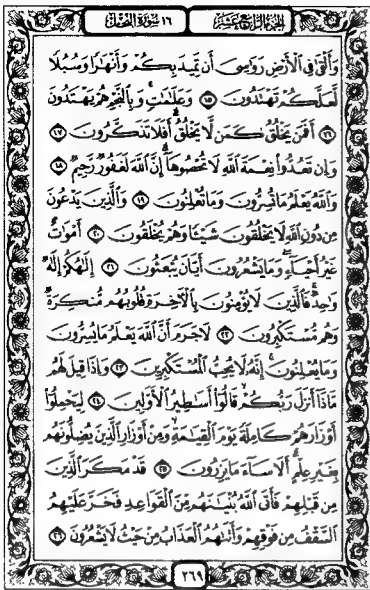 الجزء الرابع عشر
١٦ سورة النحل
وَأَلْقَىٰ فِي ٱلْأَرْضِ رَوَٰسِيَ أَن تَمِيدَ بِكُمْ وَأَنْهَٰرًا وَسُبُلًا
لَّعَلَّكُمْ تَهْتَدُونَ ١٥ وَعَلَٰمَٰتٍ وَبِٱلنَّجْمِ هُمْ يَهْتَدُونَ
١٦ أَفَمَن يَخْلُقُ كَمَن لَّا يَخْلُقُ أَفَلَا تَذَكَّرُونَ ١٧
وَإِن تَعُدُّوا۟ نِعْمَةَ ٱللَّهِ لَا تُحْصُوهَآ إِنَّ ٱللَّهَ لَغَفُورٌ رَّحِيمٌ ١٨
وَٱللَّهُ يَعْلَمُ مَا تُسِرُّونَ وَمَا تُعْلِنُونَ ١٩ وَٱلَّذِينَ يَدْعُونَ
مِن دُونِ ٱللَّهِ لَا يَخْلُقُونَ شَيْـًٔا وَهُمْ يُخْلَقُونَ ٢٠ أَمْوَٰتٌ
غَيْرُ أَحْيَآءٍ وَمَا يَشْعُرُونَ أَيَّانَ يُبْعَثُونَ ٢١ إِلَٰهُكُمْ إِلَٰهٌ
وَٰحِدٌ فَٱلَّذِينَ لَا يُؤْمِنُونَ بِٱلْـَٔاخِرَةِ قُلُوبُهُم مُّنكِرَةٌ
وَهُم مُّسْتَكْبِرُونَ ٢٢ لَا جَرَمَ أَنَّ ٱللَّهَ يَعْلَمُ مَا يُسِرُّونَ
وَمَا يُعْلِنُونَ إِنَّهُۥ لَا يُحِبُّ ٱلْمُسْتَكْبِرِينَ ٢٣ وَإِذَا قِيلَ لَهُم
مَّاذَآ أَنزَلَ رَبُّكُمْ قَالُوٓا۟ أَسَٰطِيرُ ٱلْأَوَّلِينَ ٢٤ لِيَحْمِلُوٓا۟
أَوْزَارَهُمْ كَامِلَةً يَوْمَ ٱلْقِيَٰمَةِ وَمِنْ أَوْزَارِ ٱلَّذِينَ يُضِلُّونَهُم
بِغَيْرِ عِلْمٍ أَلَا سَآءَ مَا يَزِرُونَ ٢٥ قَدْ مَكَرَ ٱلَّذِينَ
مِن قَبْلِهِمْ فَأَتَى ٱللَّهُ بُنْيَٰنَهُم مِّنَ ٱلْقَوَاعِدِ فَخَرَّ عَلَيْهِمُ
ٱلسَّقْفُ مِن فَوْقِهِمْ وَأَتَىٰهُمُ ٱلْعَذَابُ مِنْ حَيْثُ لَا يَشْعُرُونَ ٢٦
٢٦٩